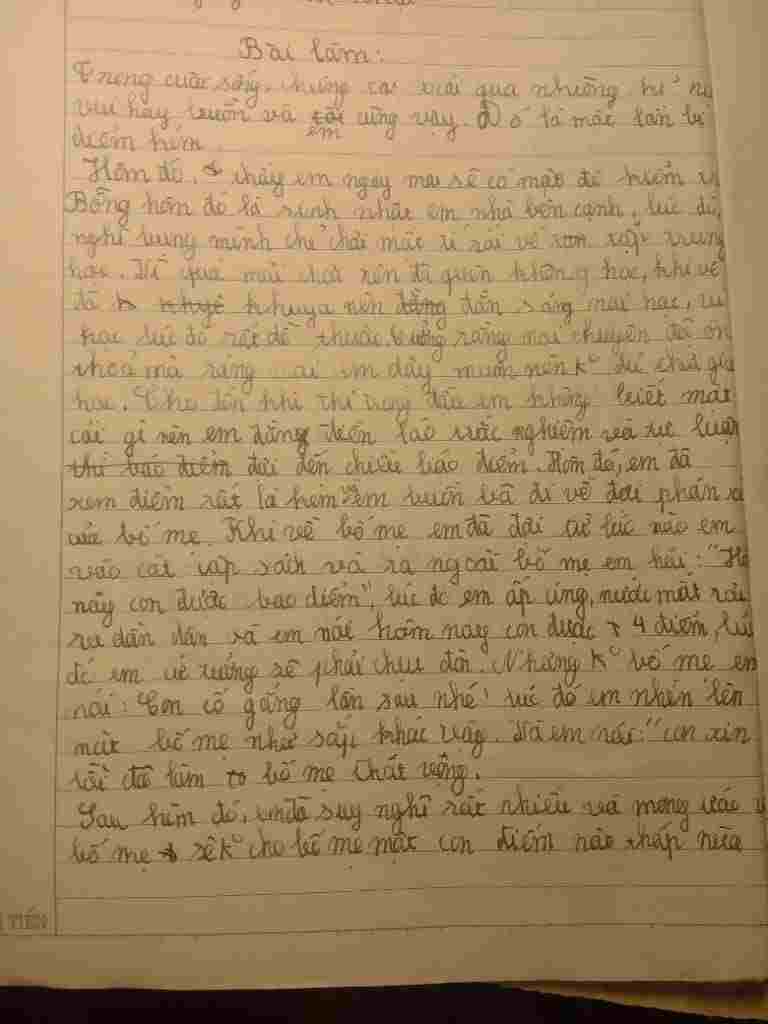 Bài làm:
Trong cuộc sống, chúng ta trải qua những
vui hay buồn và tôi em cũng vậy. Đó là một lần bị
điểm kém.
Hôm đó, thầy em ngày mai sẽ có một đề kiểm
Bỗng hôm đó là sinh nhật em nhà bên cạnh, lúc đó,
nghĩ bụng mình chỉ chơi một tí rồi về ôn tập trung
học. Vì quá mải chơi nên đã quên không học, khi về
đã khuya nên đằng dẫn sáng mai học,
học lúc đó rất dễ thuộc. tưởng rằng mọi chuyện đã ổn
thoả mà rằng em dậy muộn nên k° dư chút giờ
học. Cho đến khi thi trong đầu em không biết một
cái gì nên em đằng đến lao trắc nghiệm và tự luận
thì báo điểm đợi đến chiều báo điểm. Hôm đó, em đã
xem điểm rất là kém, em buồn bã đi về đợi phản
của bố mẹ. Khi về bố mẹ em đã đợi từ lúc nào em
vào cất cặp sách và ra ngoài bố mẹ em hỏi: "Hô
nay con được bao điểm", lúc đó em ấp úng, nước mắt rơi
ra dần dần và em nói hôm nay con được 4 điểm, lú
đó em cứ tưởng sẽ phải chịu đòn. Nhưng k° bố mẹ em
nói: Con cố gắng lần sau nhé! lúc đó em nhìn lên
mặt bố mẹ như sắp khóc vậy. Và em nói: "con xin
lỗi đã làm bố mẹ thất vọng.
Sau hôm đó, em đã suy nghĩ rất nhiều và mong ước
bố mẹ sẽ k° cho bố mẹ một con điểm nào thấp nữa
TIẾN